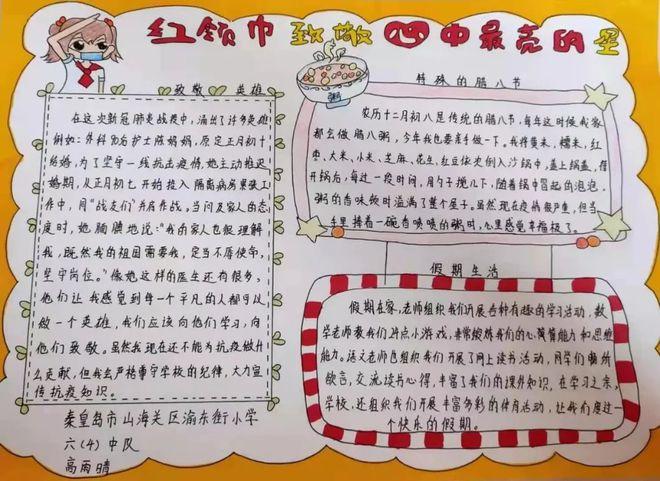 红领巾 致敬 心中最亮的星
致敬 英雄
在这次新冠肺炎战疫中，涌出了许多英雄
例如：外科90后护士陈妈妈，原定正月初十
结婚，为了坚守一线抗击疫情，她主动推迟
婚期，从正月初七开始投入隔离病房里接工
作中，同“战友们”并肩作战。当问及家人的态
度时，她腼腆地说：“我的家人也很理解
我，既然我的祖国需要我，定当不辱使命，
坚守岗位。”像她这样的医生还有很多，
他们让我感觉到每一个平凡的人都可以
做一个英雄，我们应该向他们学习，向
他们致敬。虽然我现在还不能为抗疫做什
么贡献，但我会严格遵守学校的纪律，大力宣
传抗疫知识。
秦皇岛市山海关区渝东街小学
六（4）中队
高雨晴
特殊的腊八节
粥
农历十二月初八是传统的腊八节，每年这时候我家
都会做腊八粥，今年我也要亲手做一下。我将黄米，糯米，红
枣、大米、小米、芝麻、花生、红豆依次倒入沙锅中，盖上锅盖，等
开锅后，每过一段时间，用勺子搅几下，随着锅中冒起的泡泡，
粥的香味顿时溢满了整个屋子。虽然现在疫情很严重，但当
手里捧着一碗香喷喷的粥时，心里感觉幸福极了。
假期生活
假期在家，老师组织我们开展各种有趣的学习活动，数
学老师教我们24点小游戏，非常锻炼我们的心算能力和思维
能力。语文老师也组织我们开展了网上读书活动，同学们畅所
欲言，交流读书心得，丰富了我们的课外知识。在学习之余，
学校还组织我们开展丰富多彩的体育活动，让我们度过一
个快乐的假期。